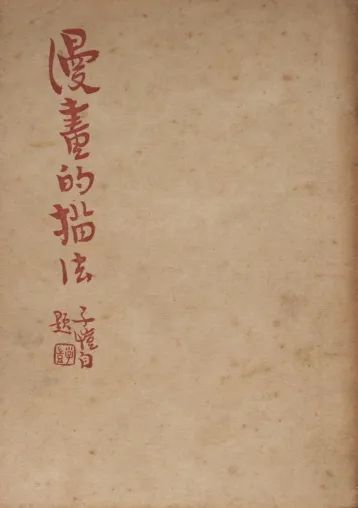 漫畫的描法
子愷自
題